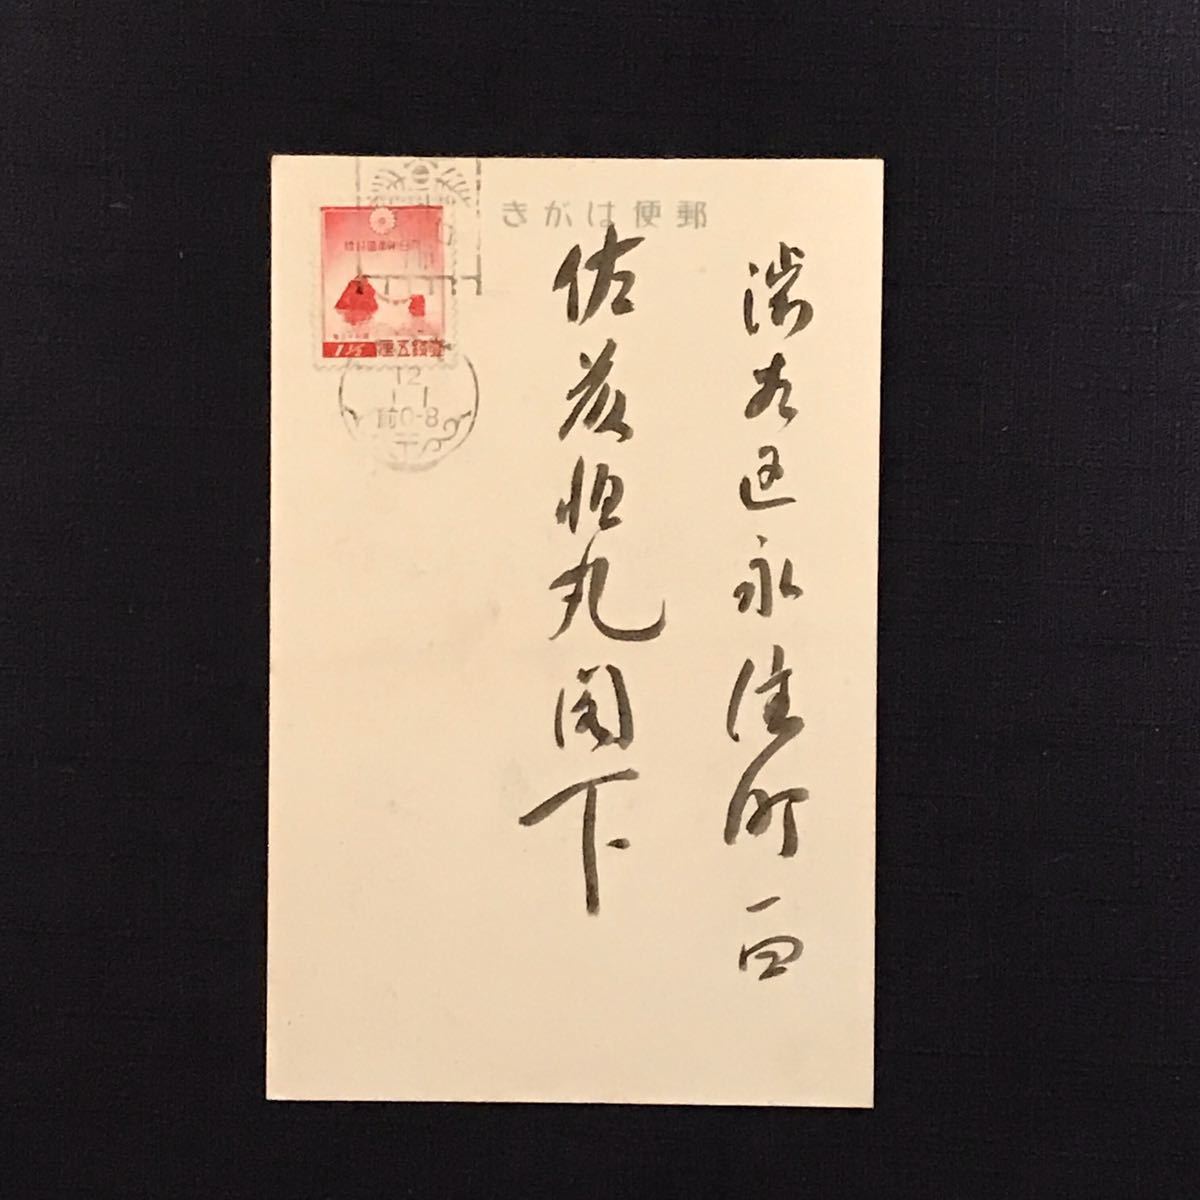 きがは便郵
渋谷区永住町一四
佐藤恒丸閣下
1½
壹錢五厘
12
1.1
前0-8